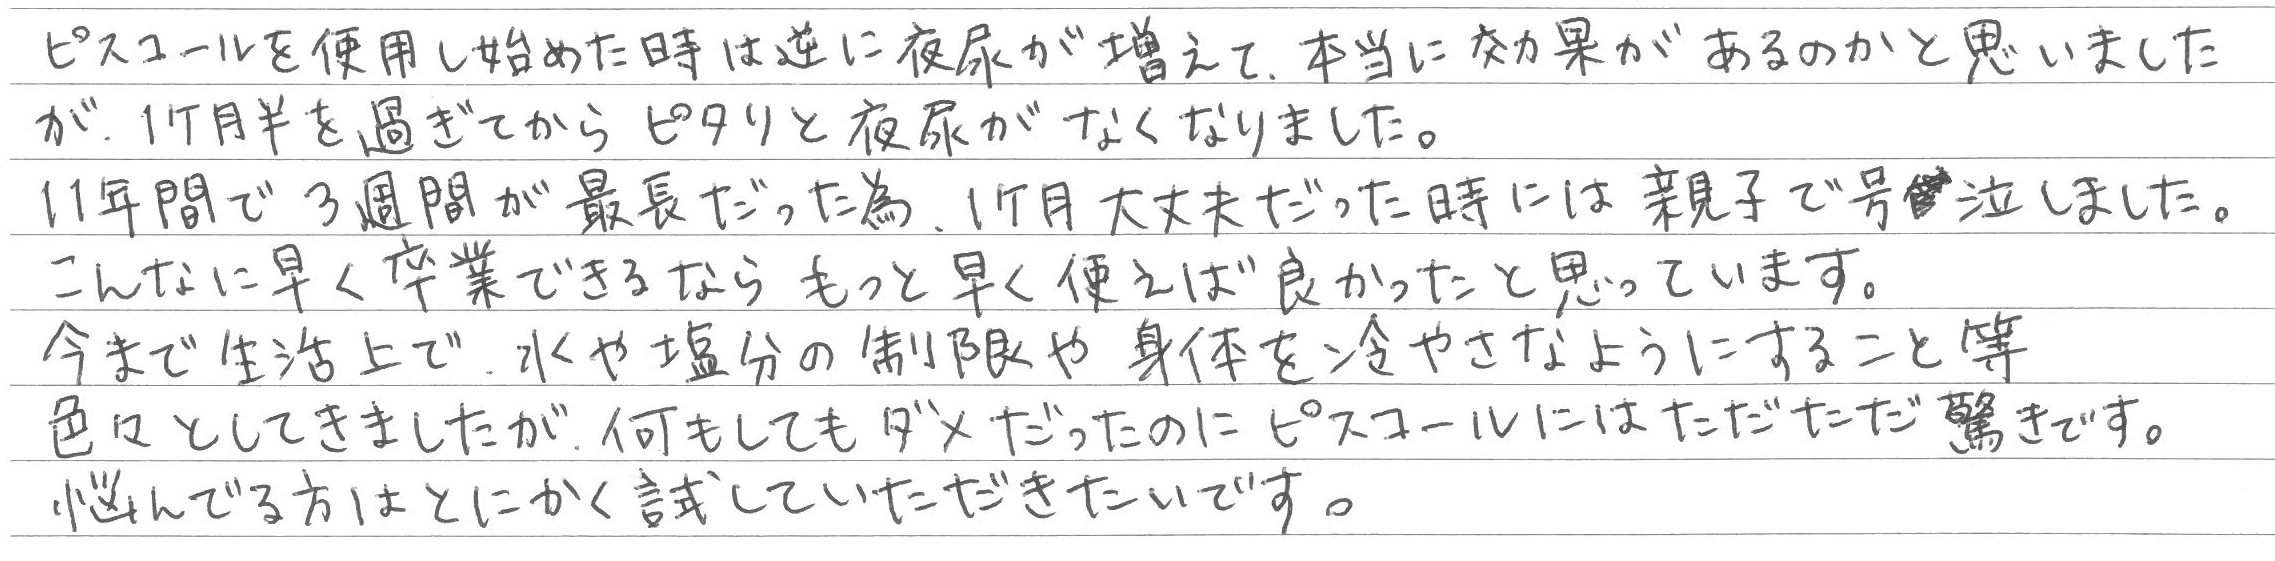 ピスコールを使用し始めた時は逆に夜尿が増えて、本当に効果があるのかと思いました
が、1ケ月半を過ぎてからピタリと夜尿がなくなりました。
11年間で3週間が最長だった為、1ケ月大丈夫だった時には親子で号泣しました。
こんなに早く卒業できるならもっと早く使えば良かったと思っています。
今まで生活上で、水や塩分の制限や身体を冷やさなようにすること等
色々としてきましたが、何もしてもダメだったのにピスコールにはただただ驚きです。
悩んでる方はとにかく試していただきたいです。